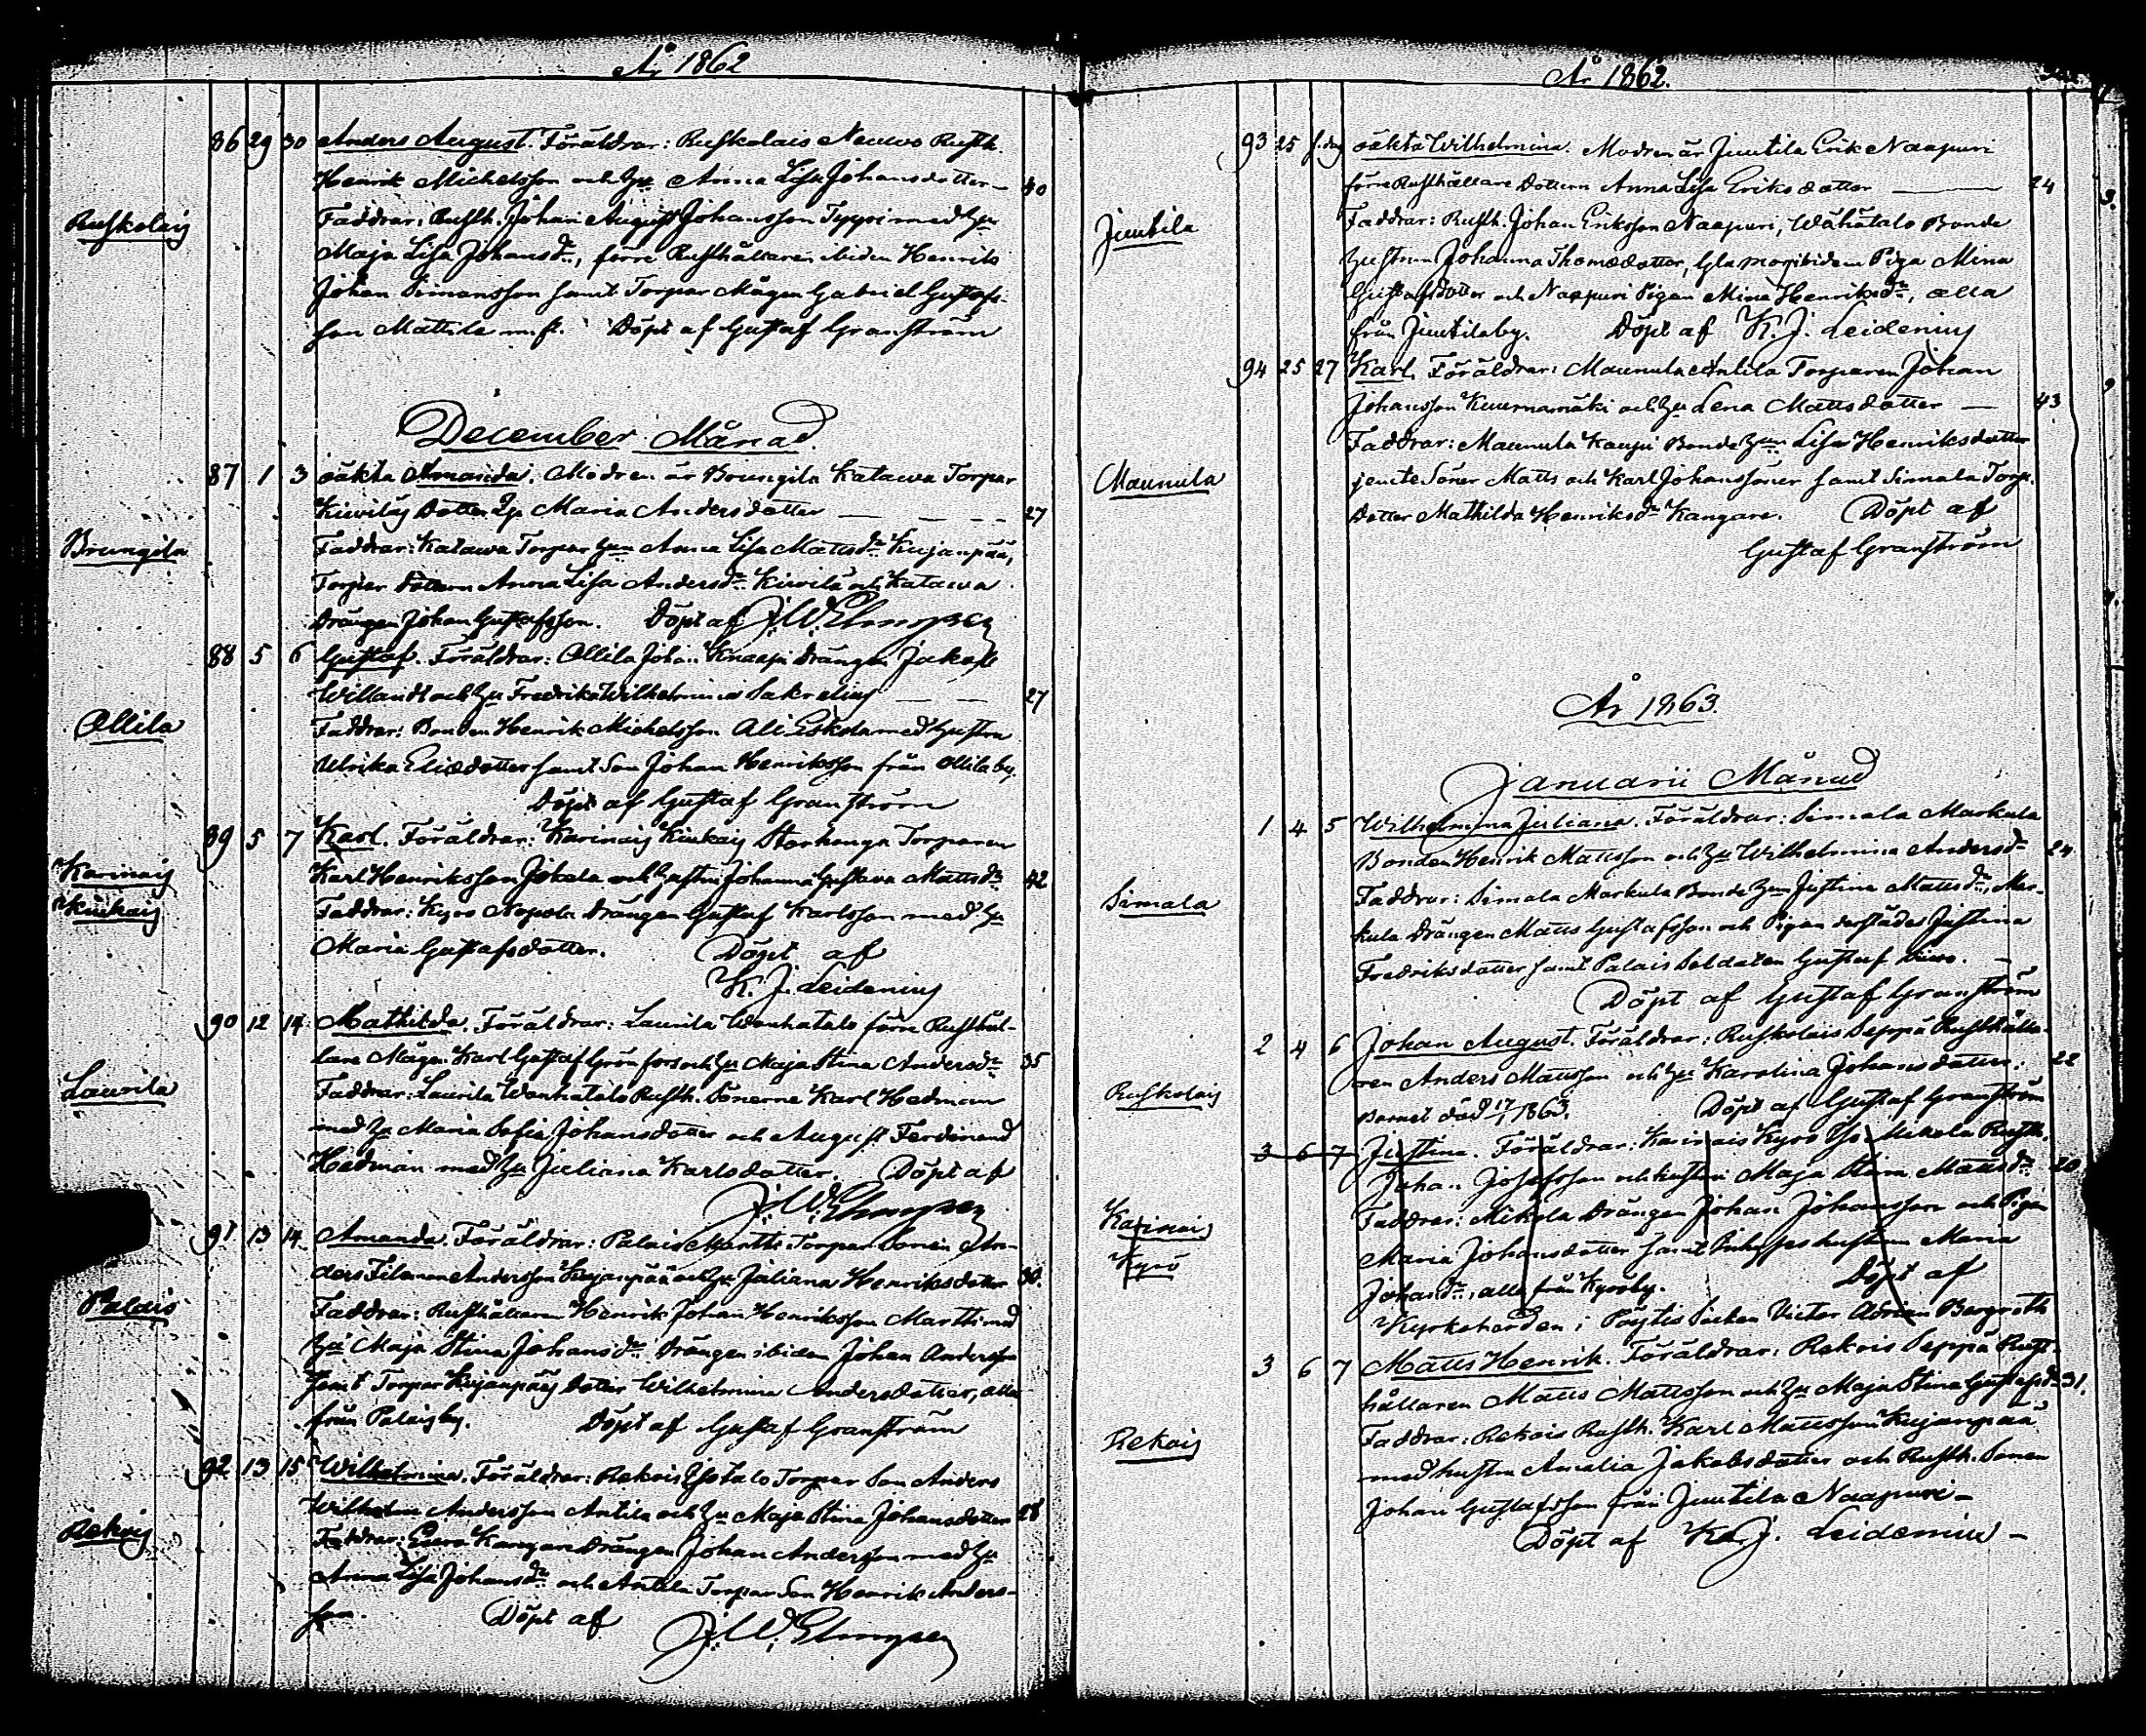 År 1862
Ruskolais
86 29 30 Anders August. Föräldrar: Ruskolais Neuvo Rusth.
Henrik Michelsson och Hu Anna Lisa Johansdotter – 40
Faddrar: Rusth. Johan August Johansson Typpi med Hu
Maja Lisa Johansdr, förre Rusthållaren ibidem Henrik
Johan Simonsson samt Torpar Mågen Gabriel Gustafs-
son Mattila m. fl. Döpt af Gustaf Granström
December Månad
Brungila
87 1 3 oäkta Amanda. Modren är Brungila Katawa Torpar
Kiviläs Dotter Maria Andersdotter — 27
Faddrar: Katawa Torpar Hun Anna Lisa Mattsdr Kujanpää,
Torpar Dottern Anna Lisa Andersdr Kivilä och Katawa
Drängen Johan Gustafsson. Döpt af
Ollila
88 5 6 Gustaf. Föräldrar: Ollila Johan Knaapi Drängen Jakob
Willandt och Hu Fredrika Wilhelmina Sakrelius — 27
Faddrar: Bonden Henrik Michelsson Ali Eskola med Hustru
Ulrika Eliædotter samt Son Johan Henriksson från Ollila by.
Döpt af Gustaf Granström
Karinais
Kiukais
89 5 7 Karl. Föräldrar: Karinais Kiukais Storhanga Torparen
Karl Henriksson Jokela och Hustru Johanna Gustava Mattsdr 42
Faddrar: Kyro Nopola Drängen Gustaf Karlsson med Hu
Maria Gustafsdotter. Döpt af
K. J. Leidenius
Laurila
90 12 14 Mathilda. Föräldrar: Laurila Wanhatalo förre Rusthål-
lare Mågen Karl Gustaf Grönfors och Hu Maja Stina Andersdr 35
Faddrar: Laurila Wanhatalo Rusth. Sönerne Karl Hedman
med Hu Maria Sofia Johansdotter och August Ferdinand
Hedman med Hu Juliana Karlsdotter. Döpt af
Palais
91 13 14 Amanda. Föräldrar: Palais Martti Torpar Sonen An-
ders Filemon Andersson Kujanpää och Hu Juliana Henriksdotter 30.
Faddrar: Rusthållaren Henrik Johan Henriksson Martti med
Hu Maja Stina Johansdr Drängen ibidem Johan Andersson
samt Torpar Kujanpääs Dotter Wilhelmina Andersdotter, alla
från Palaisby. Döpt af Gustaf Granström
Rekois
92 13 15 Wilhelmina. Föräldrar: Rekois Isotalo Torpar Son Anders
Wilhelm Andersson Antila och Hu Maja Stina Johansdotter 28
Faddrar: Eura Kangare Drängen Johan Andersson med Hu
Anna Lisa Johansdr och Antila Torpar Son Henrik Anders-
son. Döpt af
År 1862.
Juntila
93 25 s. dag oäkta Wilhelmina. Modren är Juntila Erik Naapuri
förre Rusthållare Dottern Anna Lisa Eriksdotter — 24
Faddrar: Rusth. Johan Eriksson Naapuri, Wähätalo Bonde
Hustrun Johanna Thomædotter, ibidem Piga Mina
Gustafsdotter och Naapuri Pigan Mina Henriksdr, alla
från Juntilaby. Döpt af K. J. Leidenius
Maunula
94 25 27 Karl. Föräldrar: Maunula Antila Torparen Johan
Johansson Kuurnamäki och Hu Lena Mattsdotter — 43
Faddrar: Maunula Kaupi Bonde Hun Lisa Henriksdotter
jemte Söner Matts och Karl Johanssöner samt Simala Torp.
Dotter Mathilda Henriksdr Kangare. Döpt af
Gustaf Granström
År 1863.
Januarii Månad
Simala
1 4 5 Wilhelmina Juliana. Föräldrar: Simala Markula
Bonden Henrik Mattsson och Hu Wilhelmina Andersdr 24.
Faddrar: Simala Markula Bonde Hun Justina Mattsdr, Mar-
kula Drängen Matts Gustafsson och Pigan derstädes Justina
Fredriksdotter samt Palais Soldaten Gustaf
Döpt af Gustaf Granström
Ruskolais
2 4 6 Johan August. Föräldrar: Ruskolais Seppä Rusthålla-
ren Anders Mattsson och Hu Karolina Johansdotter. 22
Barnet död 17/1 1863. Döpt af Gustaf Granström
Karinais
Kyrö
3 6 7 Justina. Föräldrar: Karinais Kyrö Iso Mikola Rusth.
Johan Josefsson och hustru Maja Stina Mattsdr 20
Faddrar: Mikola Drängen Johan Johansson och Pigan
Maria Johansdotter samt hustrun Maria
Johansdr, alla från Kyröby. Döpt af
Kyrkoherden i Pöytis Socken Victor Adrian Bergroth
Rekois
3 6 7 Matts Henrik. Föräldrar: Rekois Seppä Rust-
hållaren Matts Mattsson och Hu Maja Stina Gustafsdr 31.
Faddrar: Rekois Rusth. Karl Mattsson Kujanpää
med hustru Amalia Jakobsdotter och Rusth. Sonen
Johan Gustafsson från Juntila Naapuri –
Döpt af K. J. Leidenius –